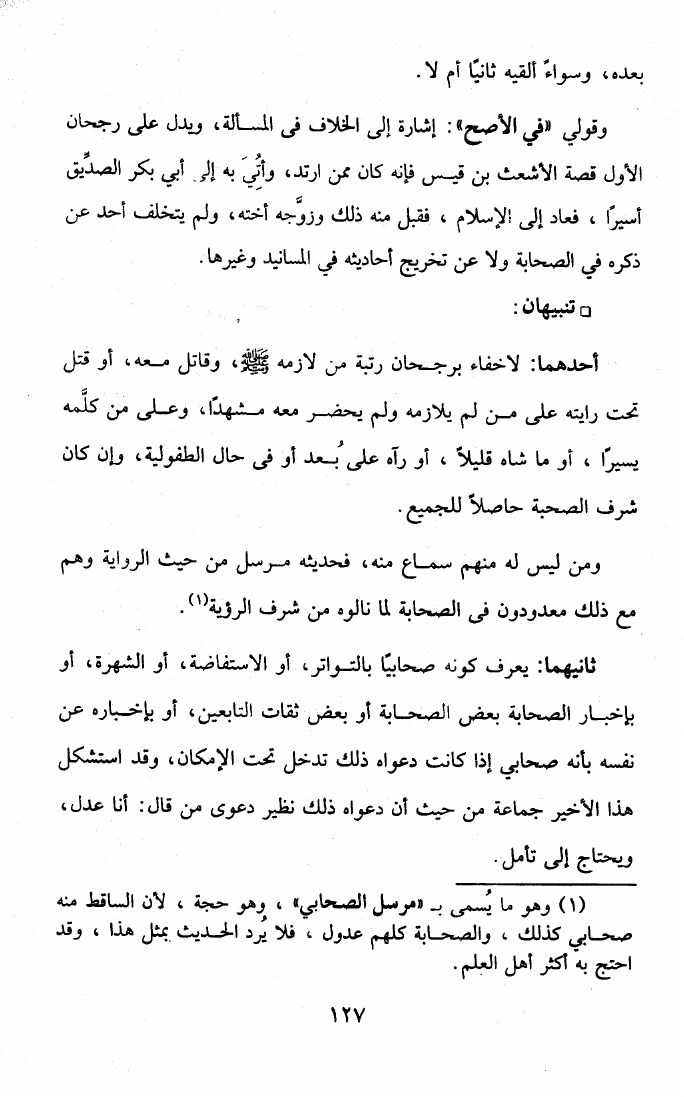 بعده، وسواءً ألقيه ثانيًا أم لا.
وقولي «في الأصح»: إشارة إلى الخلاف فى المسألة، ويدل على رجحان
الأول قصة الأشعث بن قيس فإنه كان ممن ارتد، وأُتِيَ به إلى أبي بكر الصدِّيق
أسيرًا ، فعاد إلى الإسلام ، فقبل منه ذلك وزوَّجه أخته، ولم يتخلف أحد عن
ذكره في الصحابة ولا عن تخريج أحاديثه في المسانيد وغيرها.
□ تنبيهان:
أحدهما: لاخفاء برجحان رتبة من لازمه ﷺ، وقاتل معه، أو قتل
تحت رايته على من لم يلازمه ولم يحضر معه مشهدًا، وعلى من كلَّمه
يسيرًا ، أو ما شاه قليلاً ، أو رآه على بُعد أو فى حال الطفولية، وإن كان
شرف الصحبة حاصلاً للجميع.
ومن ليس له منهم سماع منه، فحديثه مرسل من حيث الرواية وهم
مع ذلك معدودون فى الصحابة لما نالوه من شرف الرؤية(١).
ثانيهما: يعرف كونه صحابيًا بالتواتر، أو الاستفاضة، أو الشهرة، أو
بإخبار الصحابة بعض الصحابة أو بعض ثقات التابعين، أو بإخباره عن
نفسه بأنه صحابي إذا كانت دعواه ذلك تدخل تحت الإمكان، وقد استشكل
هذا الأخير جماعة من حيث أن دعواه ذلك نظير دعوى من قال: أنا عدل،
ويحتاج إلى تأمل.
(١) وهو ما يُسمى بـ «مرسل الصحابي» ، وهو حجة ، لأن الساقط منه
صحابي كذلك ، والصحابة كلهم عدول ، فلا يُرد الحديث بمثل هذا ، وقد
احتج به أكثر أهل العلم.
١٢٧